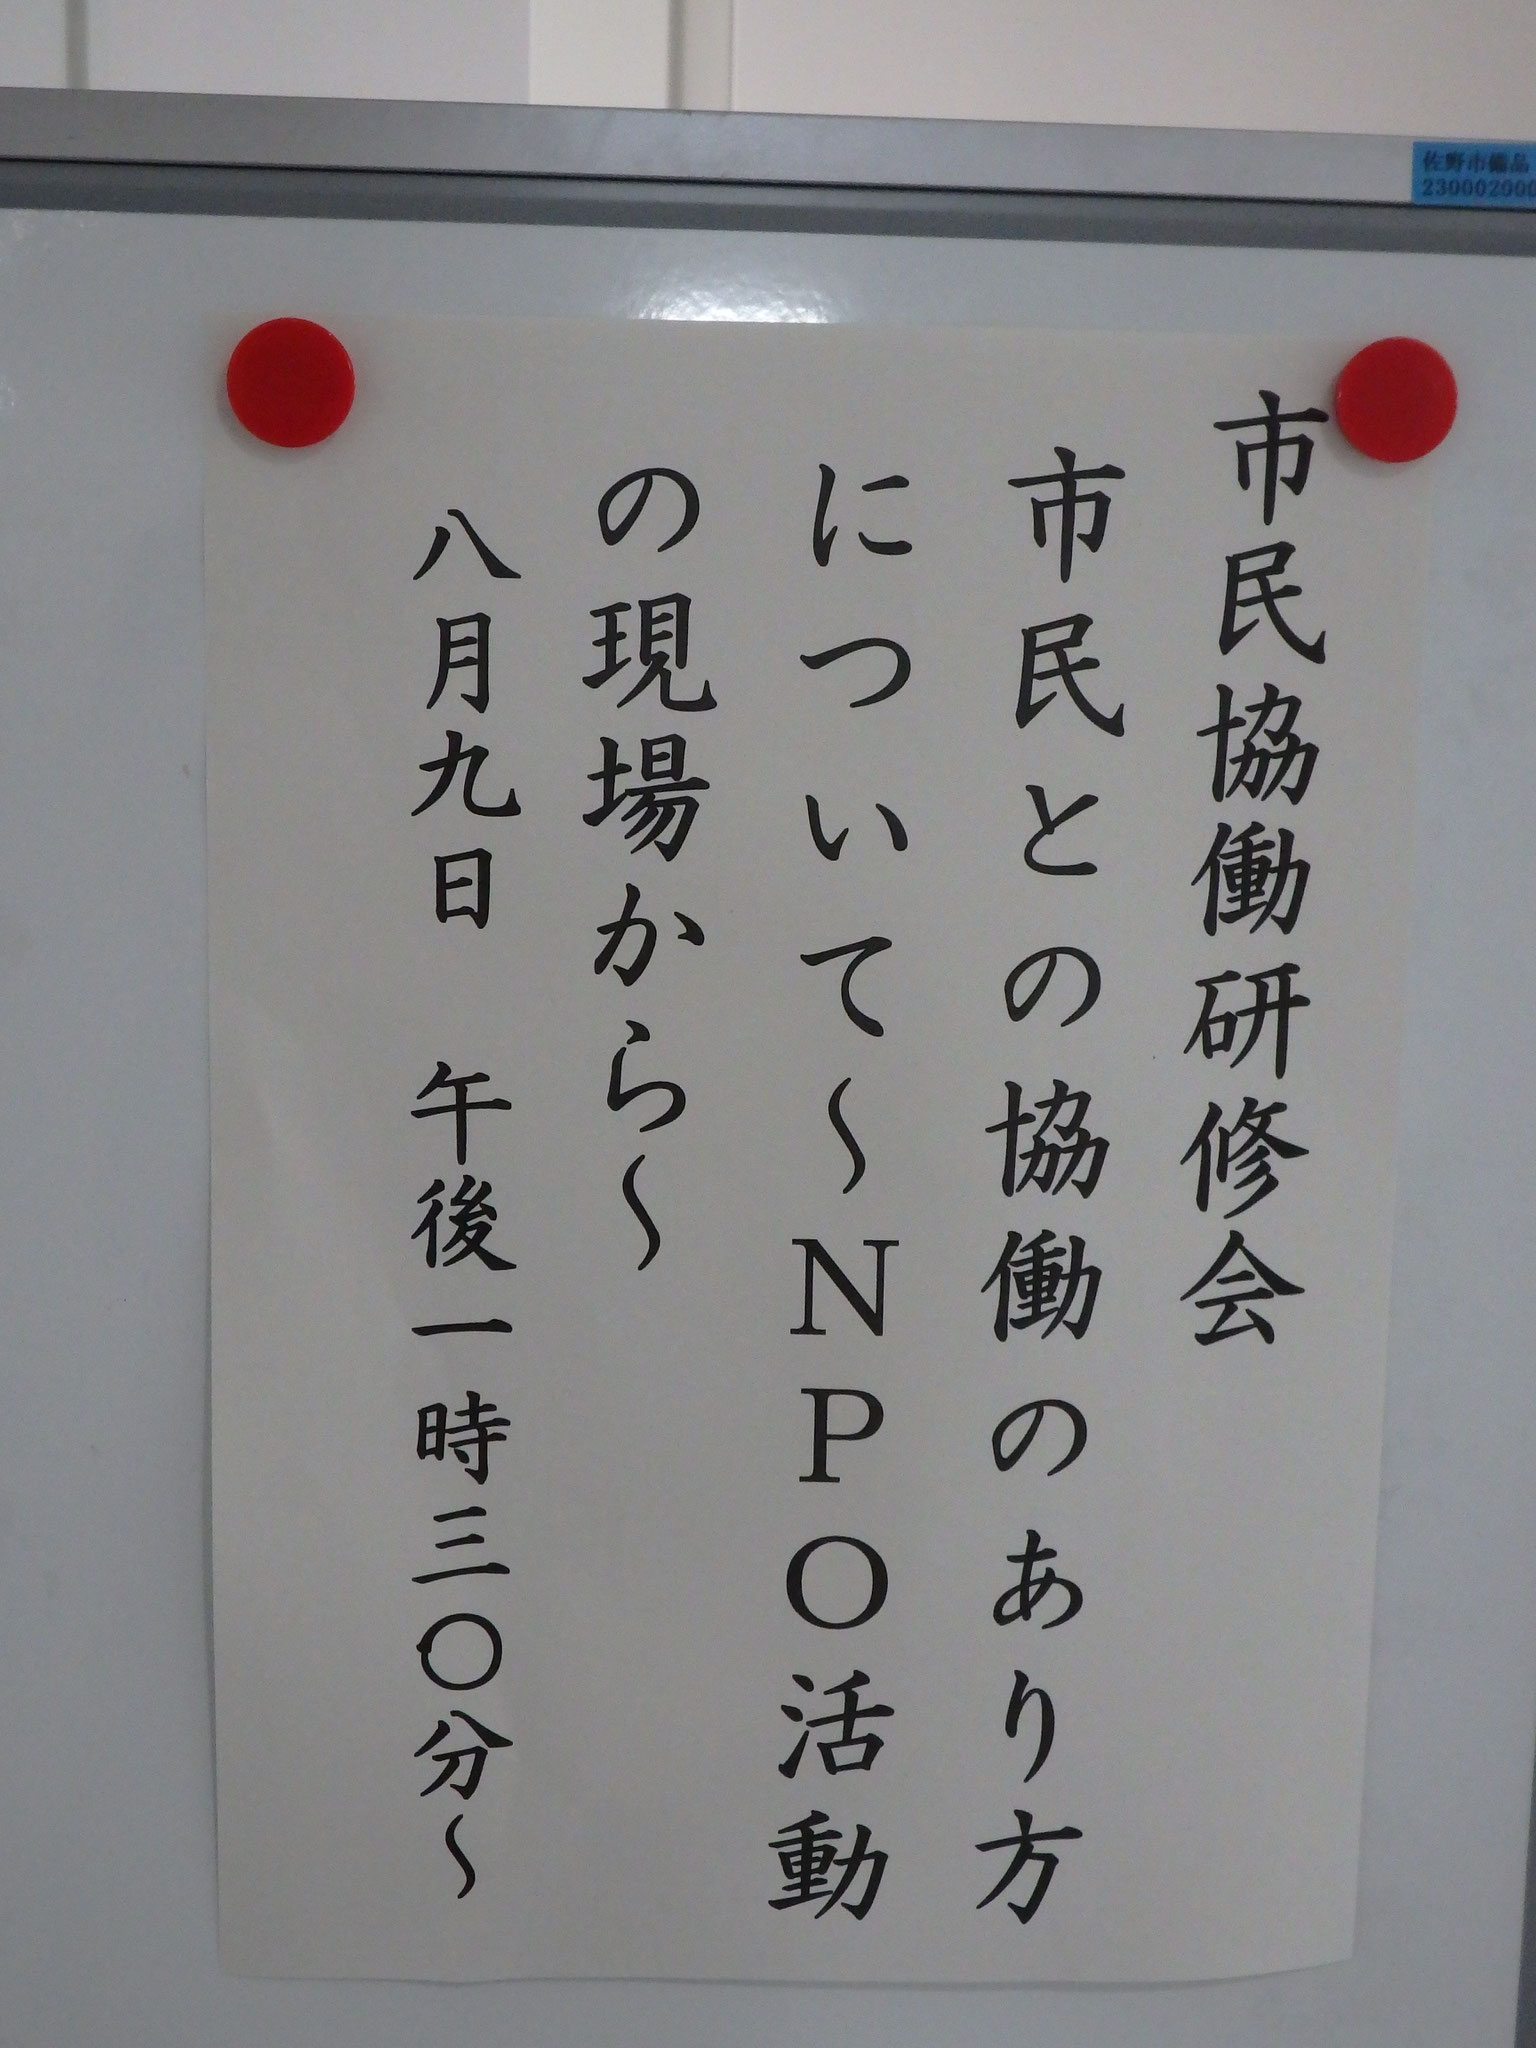 佐野市備品
230002000
市民協働研修会
市民との協働のあり方
について～NPO活動
の現場から～
八月九日　午後一時三〇分～